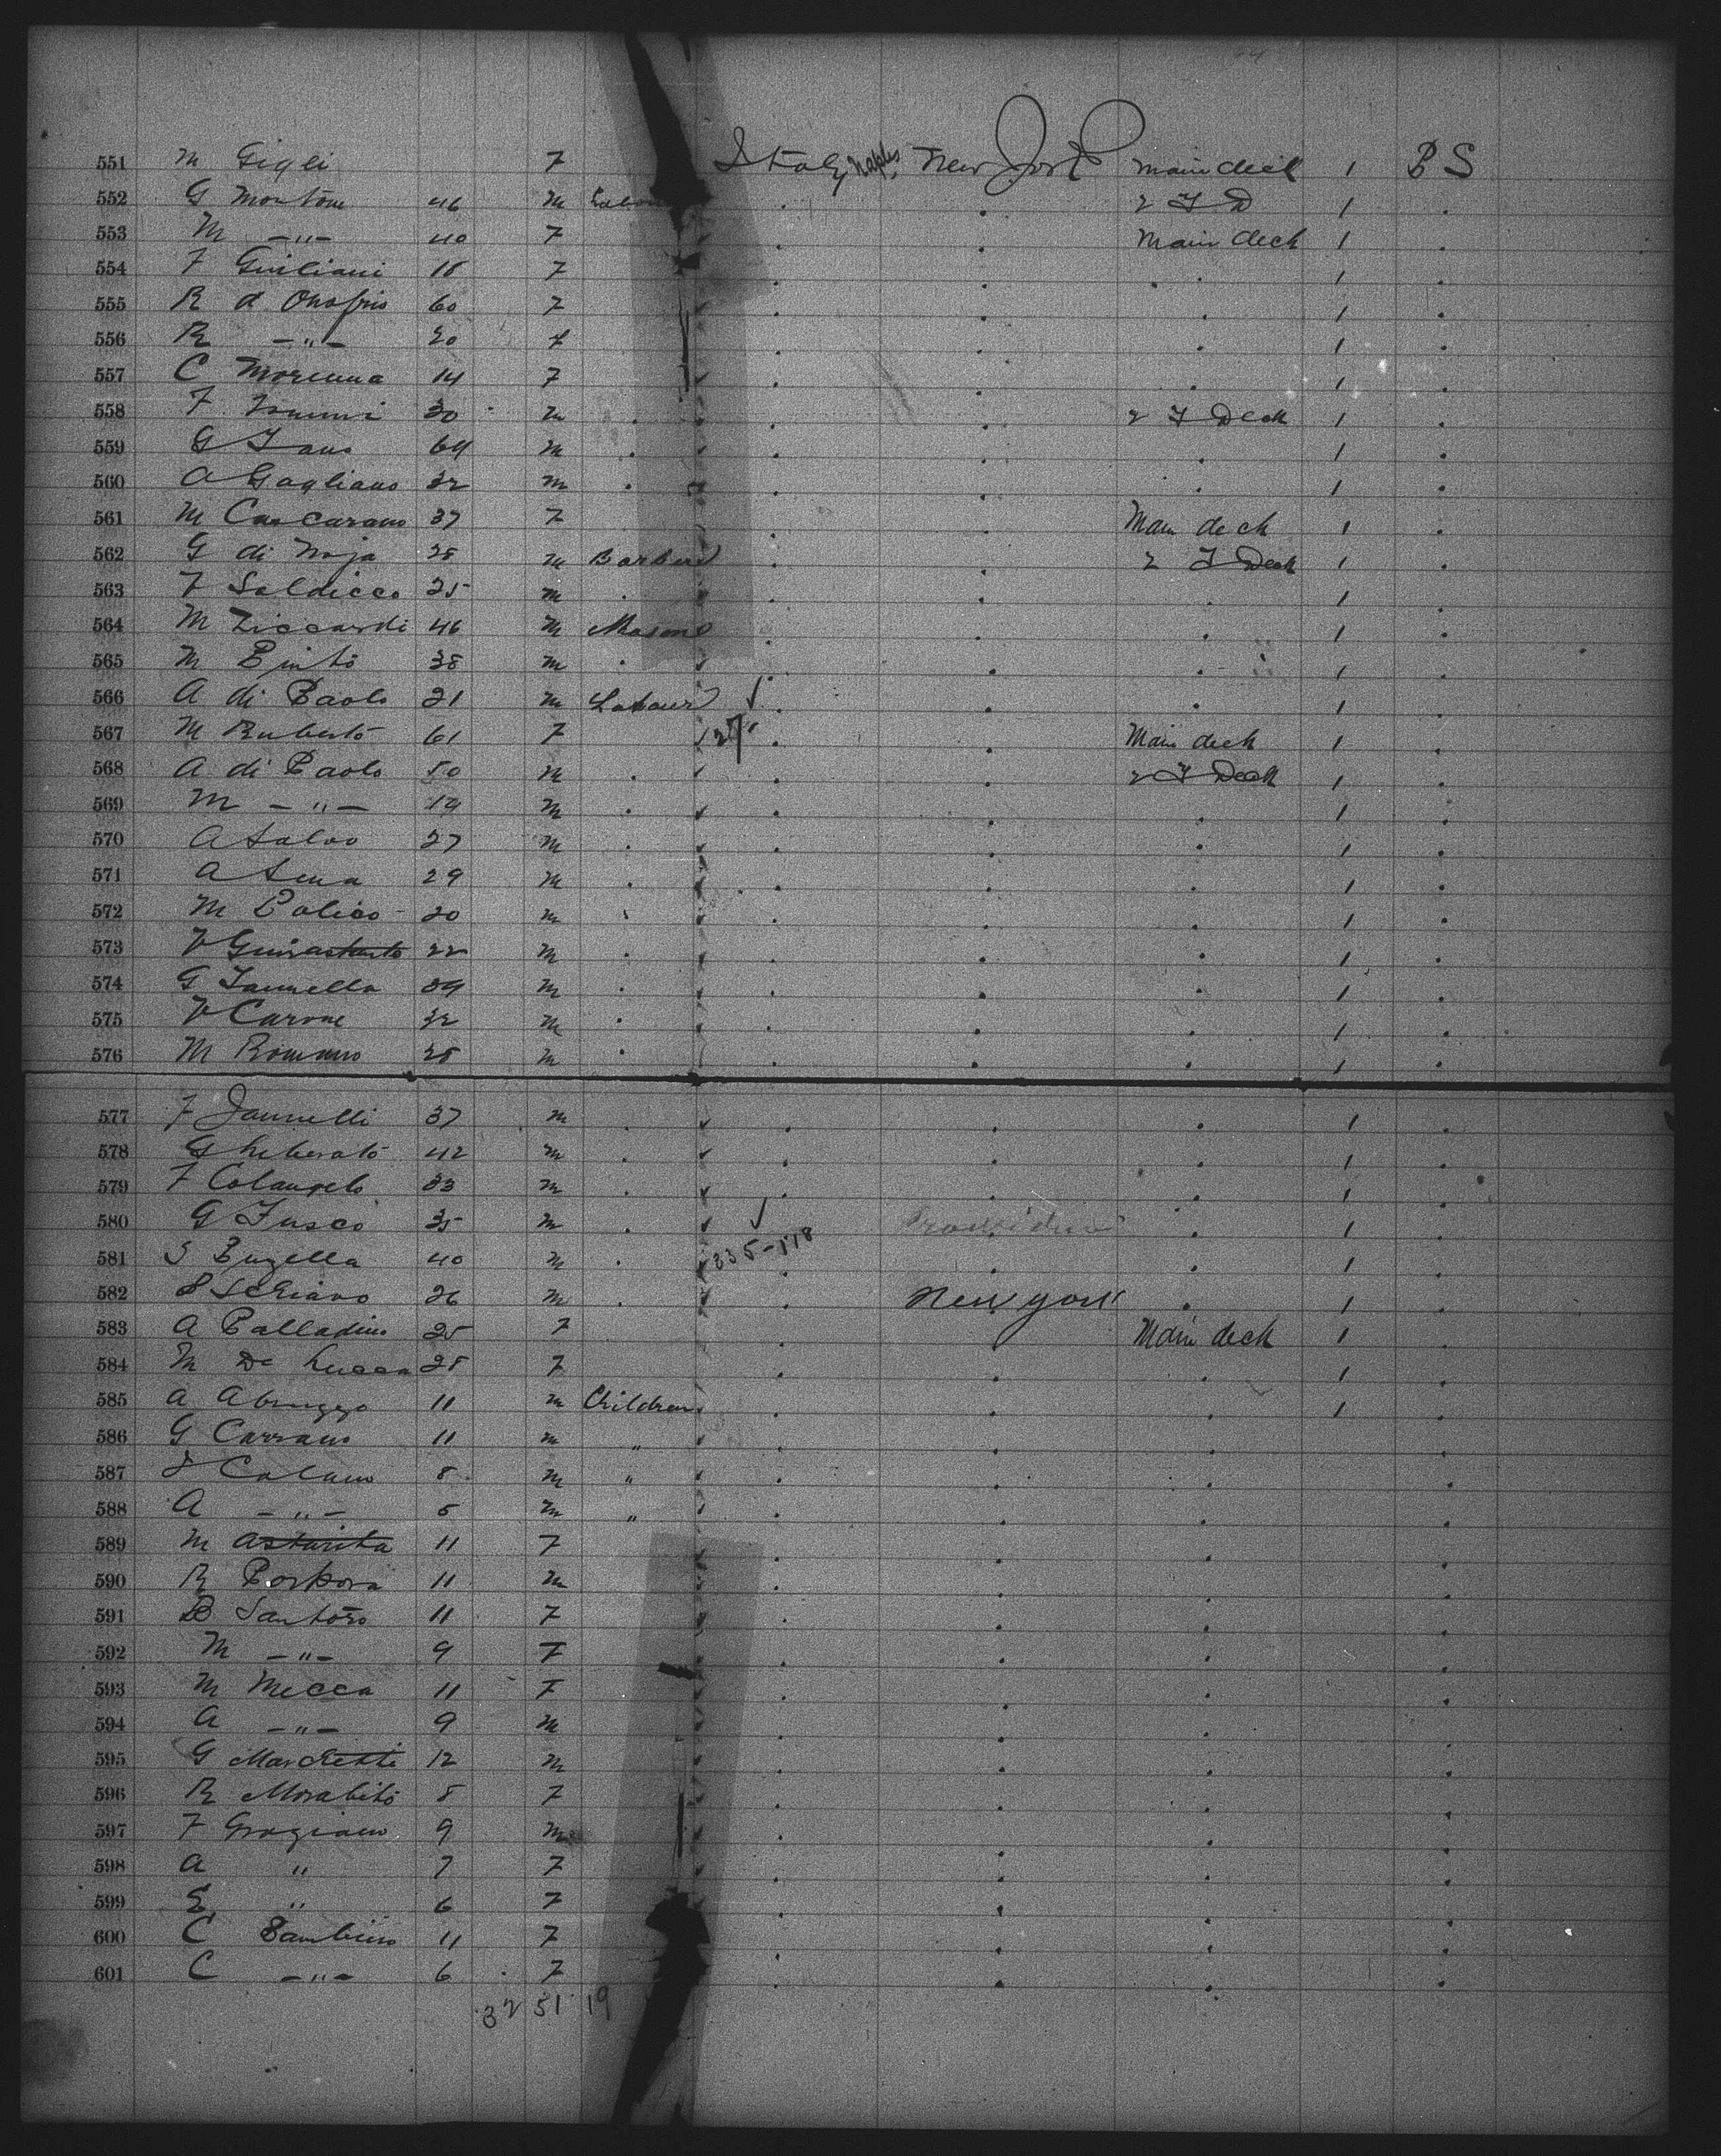 551 M Gigli F Italy Naples New York Main deck 1 B S
552 G Montone 46 M Labour 2 T D 1
553 M -"- 40 F Main deck 1
554 F Giuliani 18 F 1
555 R d Onofrio 60 F 1
556 R -"- 20 F 1
557 C 14 F 1
558 F 30 M 2 T Deck 1
559 G 64 M 1
560 A Gagliano 32 M 1
561 M Cascarano 37 F Main deck 1
562 G di Noja 28 M Barber 2 T Deck 1
563 F Saldicco 25 M 1
564 M Ziccardi 46 M Mason 1
565 M Pinto 38 M 1
566 A di Paolo 21 M Labour ✓ 1
567 M Ruberto 61 F Main deck 1
568 A di Paolo 50 M 2 T Deck 1
569 M -"- 19 M 1
570 A Salvo 27 M 1
571 A Sena 29 M 1
572 M 20 M 1
573 V 22 M 1
574 G Iannella 39 M 1
575 V Carone 32 M 1
576 M Romano 28 M 1
577 F Iannelli 37 M 1
578 G Liberato 42 M 1
579 F Colangelo 33 M 1
580 G Fusco 35 M ✓ 1
581 S Buzella 40 M 335-118 1
582 S Schiavo 26 M New York 1
583 A Palladino 25 F Main deck 1
584 M De Lucca 28 F 1
585 A Abruzzo 11 M Children 1
586 G Carrano 11 M "
587 8 M "
588 A -"- 5 M "
589 M Astarita 11 F
590 R Porpora 11 M
591 B Santoro 11 F
592 M -"- 9 F
593 M Mecca 11 F
594 A -"- 9 M
595 G Marchetti 12 M
596 R Morabito 8 F
597 F Graziano 9 M
598 A " 7 F
599 E " 6 F
600 C Sambiero 11 F
601 C -"- 6 F
32 51 19